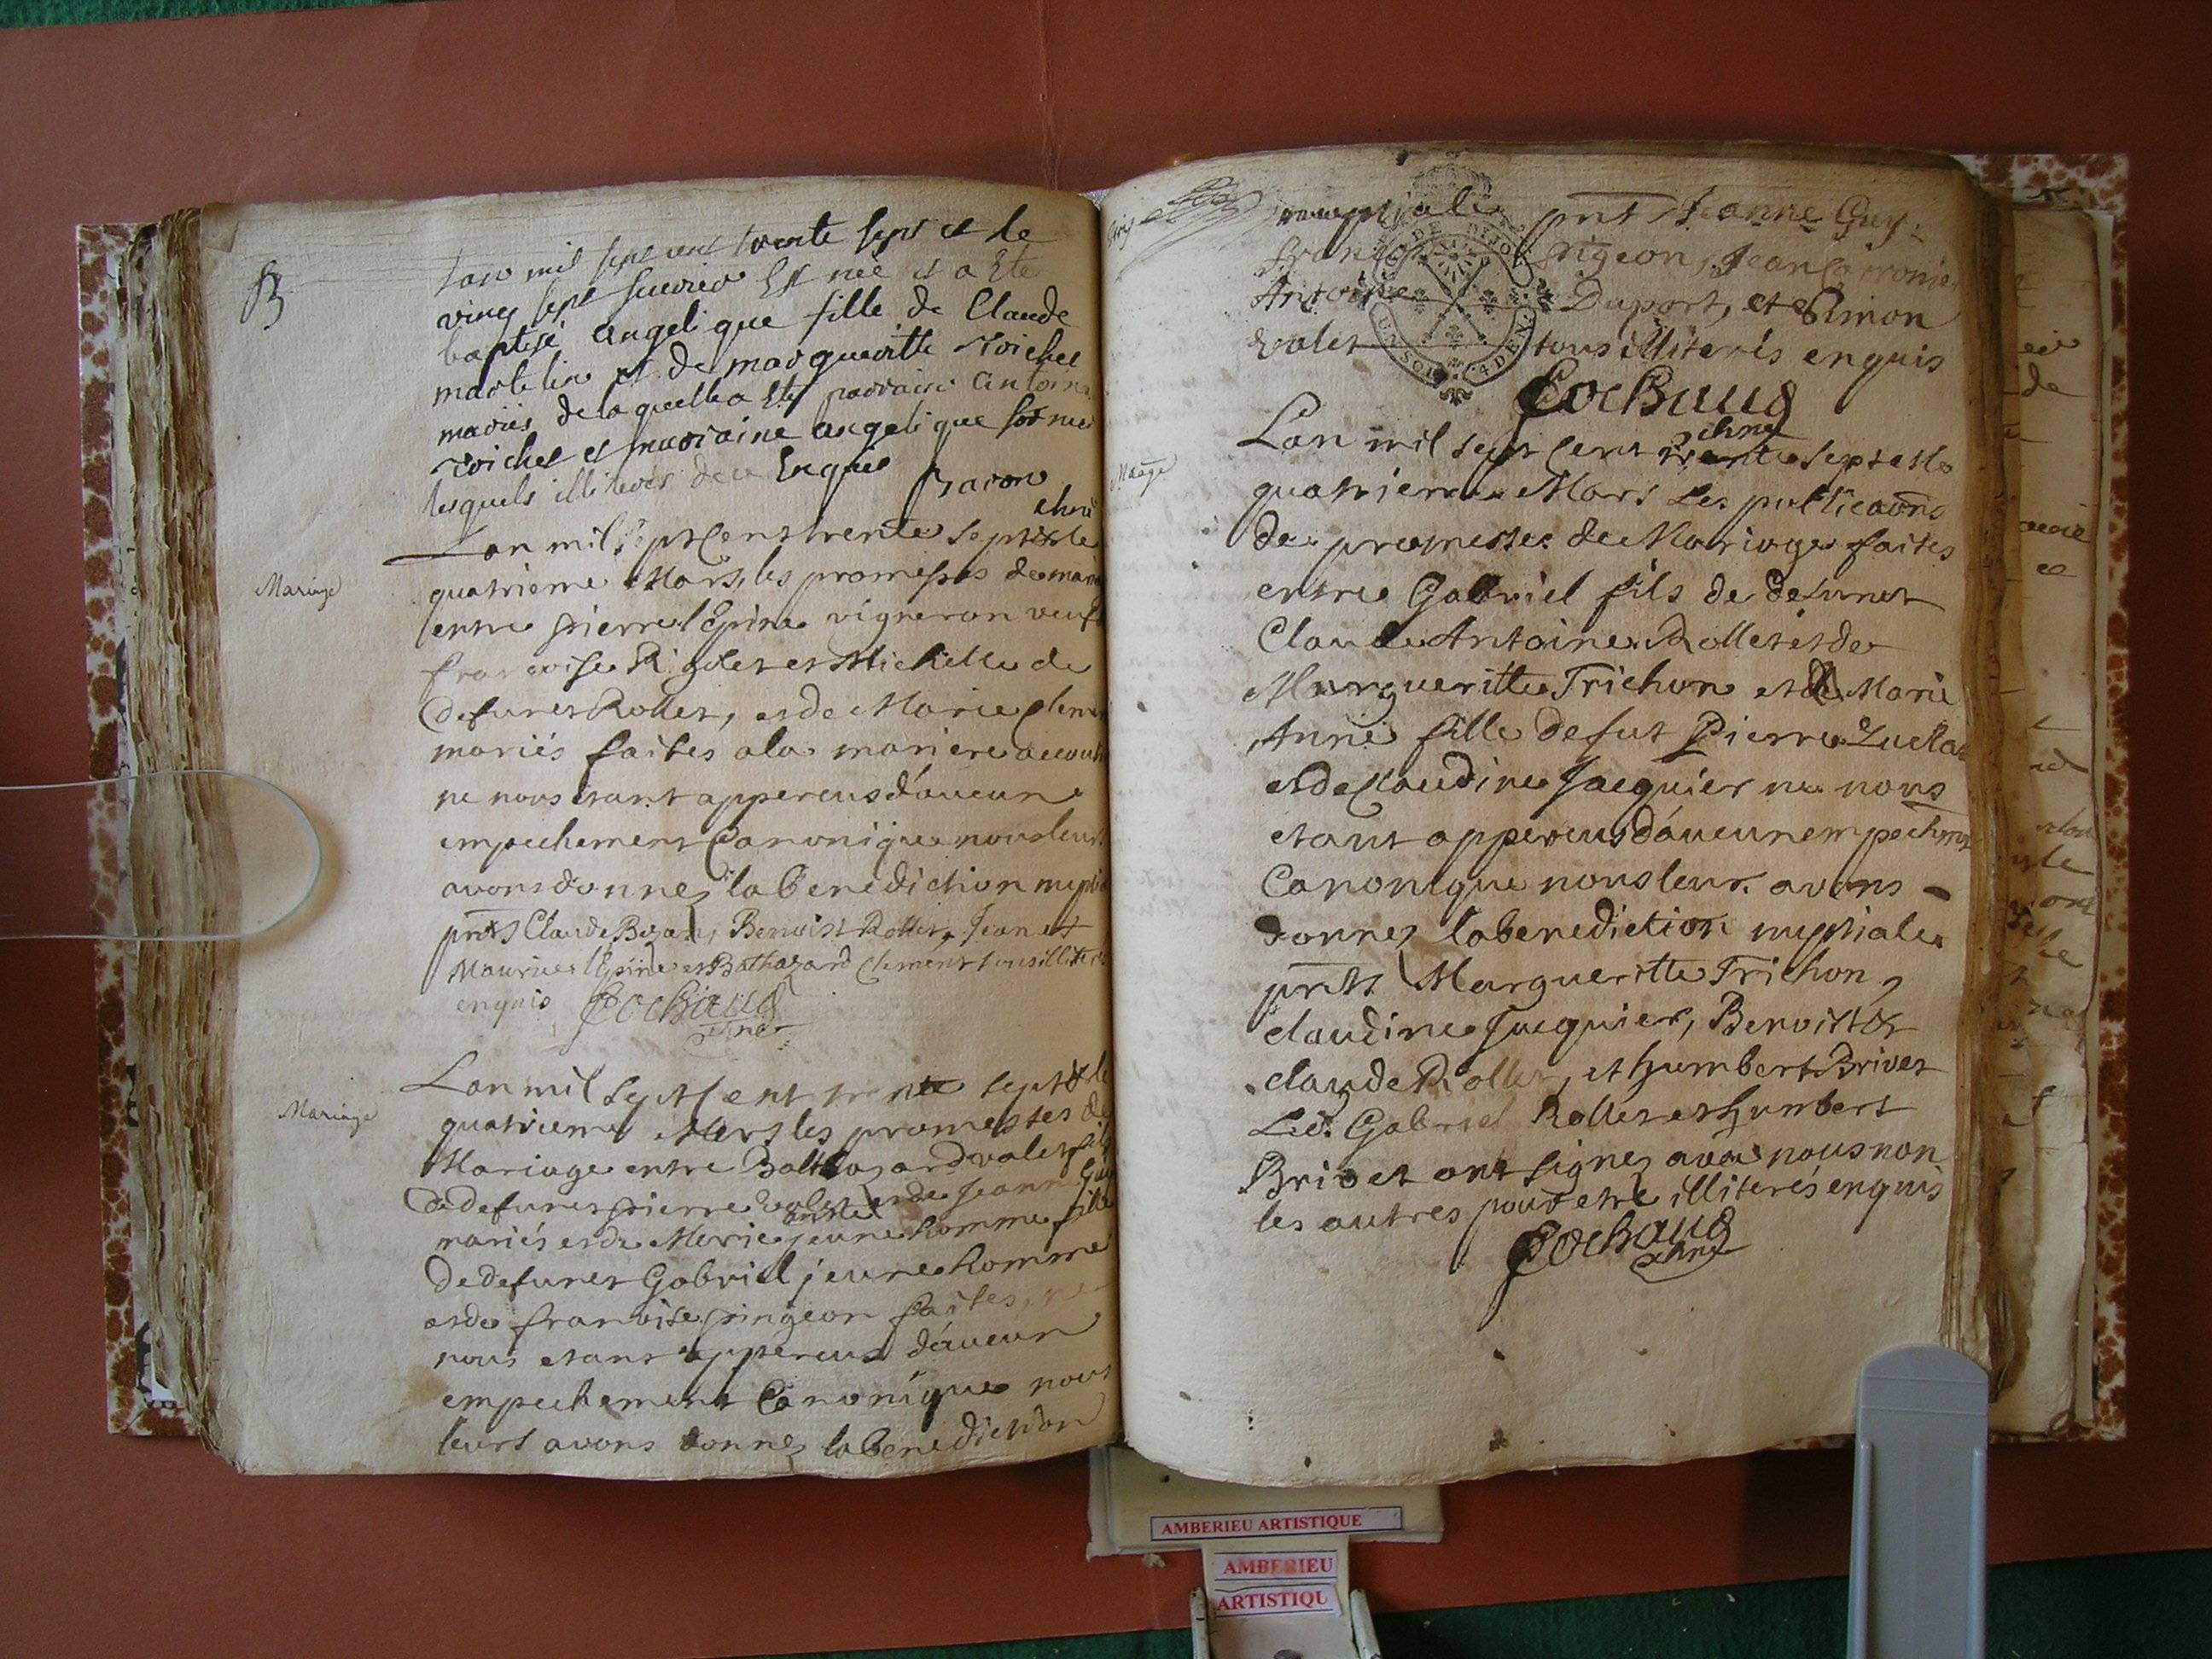 B
Lan mil sept cent trente sept et le
vingt sept feuvier Est neé et a Eté
baptisé angelique fille de Claude
martelin et de margueritte Troichet
mariés de laquelle a Eté parraine Antoine
Troichet et marraine angelique
lesquels illiterés de ce Enquis Baron
Mariage
Lan mil sept cens trente sept et le
quatrieme Mars, les promesses de maria
entre pierre l'Epine vigneron veuf
francoise Rigolet et Michelle de
defunct Rollet, et de Marie Clement
mariés faites a la maniere accoutu
ne nous etant appercus d'aucun
empechement Canonique nous leurs
avons donnez la benediction nuptia
pnts Claude Bozan, Benoist Rollet, Jean et
Maurice l'Epine et Balthazard Clement tous illiteres
enquis Cochaud
Mariage
Lan mil sept Cent trente sept et le
quatrieme Mars les promesses de
Mariage entre Balthazard valet fils
de defunct pierre valet et de Jeanne Guy
mariés et de Marie jeune homme fille
De defunct Gabriel jeune homme
et de francoise pingeon faites, ne
nous etant appercus d'aucun
empechement Canonique nous
leurs avons donnez la Benediction
nuptiale pnts Jeanne Guy
francoise pingeon, Jean Carronier
Antoine Duport, et Simon
valet tous illiterés enquis
Cochaud
GEN. DE DIJON
Maage
Lan mil sept Cent trente sept et le
quatrieme Mars Les publicaons
de promesses de Mariage faites
entre Gabriel fils de defunct
Claude Antoine Rollet et de
Margueritte Trichon et de Marie
Anne fille de fut Pierre
et de Claudine Jacquier ne nous
etant appercus d'aucun empechmnt
Canonique nous leur avons
donnez la benediction nuptiale
pnts Margueritte Trichon,
claudine Jacquier, Benoist et
claude Rollet, et humbert Brivet
Led. Gabriel Rollet et humbert
Brivet ont signez avec nous non
les autres pour etre illiterés enquis
Cochaud
AMBERIEU ARTISTIQUE
AMBERIEU
ARTISTIQU